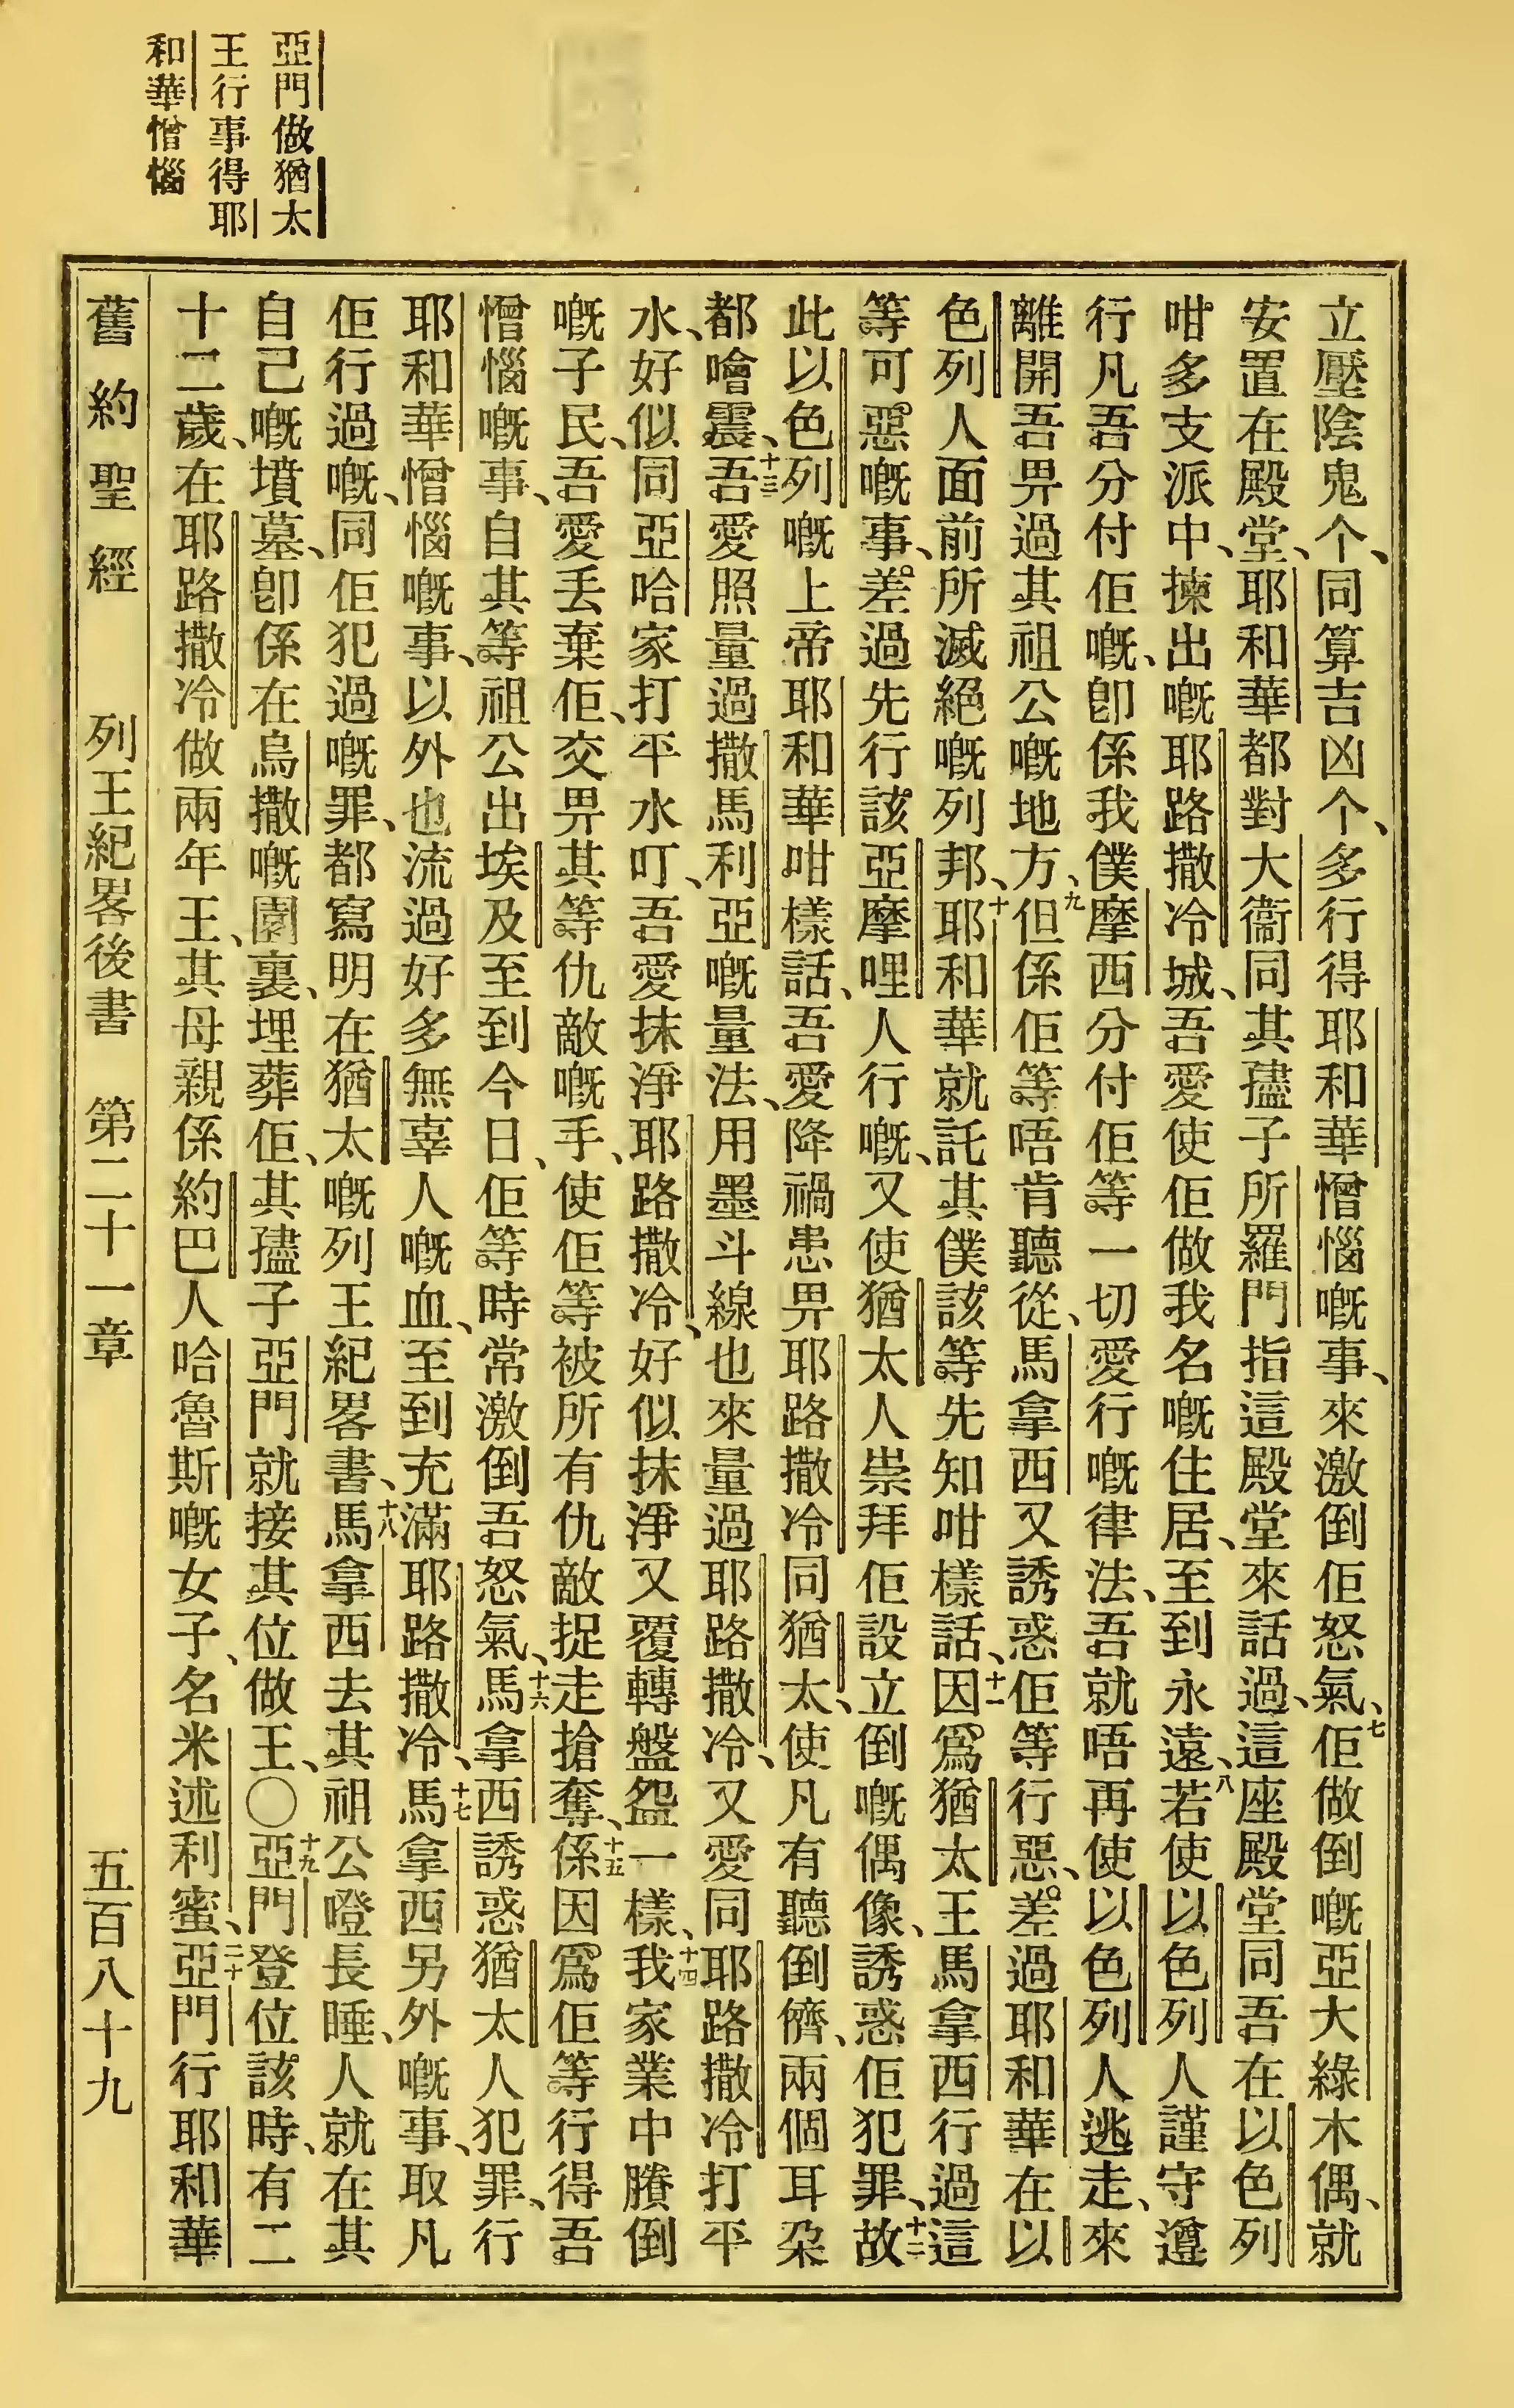 亞門做猶太
王行事得耶
和華憎惱
立壓陰鬼个、同算吉凶个、多行得耶和華憎惱嘅事、來激倒佢怒氣、七佢做倒嘅亞大綠木偶、就
安置在殿堂、耶和華都對大衞同其𡥧子所羅門指這殿堂來話過、這座殿堂同吾在以色列
咁多支派中、揀出嘅耶路撒冷城、吾愛使佢做我名嘅住居、至到永遠、八若使以色列人謹守遵
行凡吾分付佢嘅、卽係我僕摩西分付佢等一切愛行嘅律法、吾就唔再使以色列人逃走、來
離開吾畀過其祖公嘅地方、九但係佢等唔肯聽從、馬拿西又誘惑佢等行惡、差過耶和華在以
色列人面前所滅絕嘅列邦、十耶和華就託其僕該等先知咁樣話、十一因爲猶太王馬拿西行過這
等可惡嘅事、差過先行該亞摩哩人行嘅、又使猶太人崇拜佢設立倒嘅偶像、誘惑佢犯罪、十二故
此以色列嘅上帝耶和華咁樣話、吾愛降禍患畀耶路撒冷同猶太、使凡有聽倒儕、兩個耳朶
都噲震、十三吾愛照量過撒馬利亞嘅量法、用墨斗線也來量過耶路撒冷、又愛同耶路撒冷打平
水、好似同亞哈家打平水叮、吾愛抹淨耶路撒冷、好似抹淨又覆轉盤盌一樣、十四我家業中賸倒
嘅子民、吾愛丢棄佢、交畀其等仇敵嘅手、使佢等被所有仇敵捉走搶奪、十五係因爲佢等行得吾
憎惱嘅事、自其等祖公出埃及至到今日、佢等時常激倒吾怒氣、十六馬拿西誘惑猶太人犯罪、行
耶和華憎惱嘅事、以外也流過好多無辜人嘅血、至到充滿耶路撒冷、十七馬拿西另外嘅事、取凡
佢行過嘅、同佢犯過嘅罪、都寫明在猶太嘅列王紀畧書、十八馬拿西去其祖公嶝長睡、人就在其
自己嘅墳墓、卽係在烏撒嘅園裏、埋葬佢、其𡥧子亞門就接其位做王、〇十九亞門登位該時、有二
十二歲、在耶路撒冷做兩年王、其母親係約巴人哈魯斯嘅女子、名米述利蜜、二十亞門行耶和華
舊約聖經 列王紀畧後書 第二十一章 五百八十九